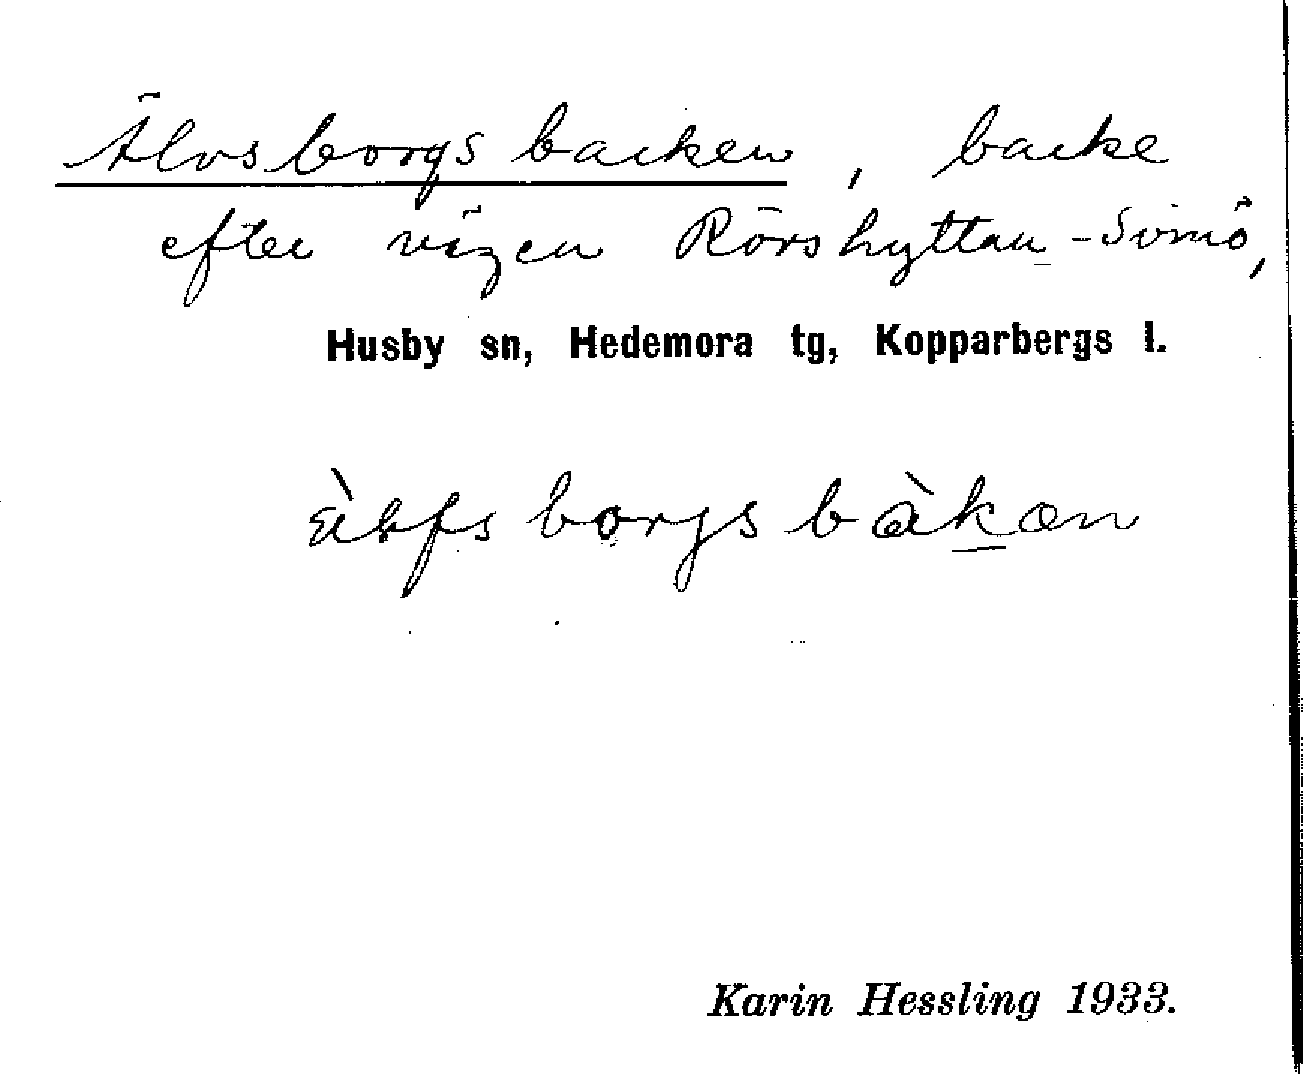 Älvsborgsbacken, backe
efter vägen Rörshyttan - Svinö,
Husby sn, Hedemora tg, Kopparbergs l.
borgsbàkən
Karin Hessling 1933.